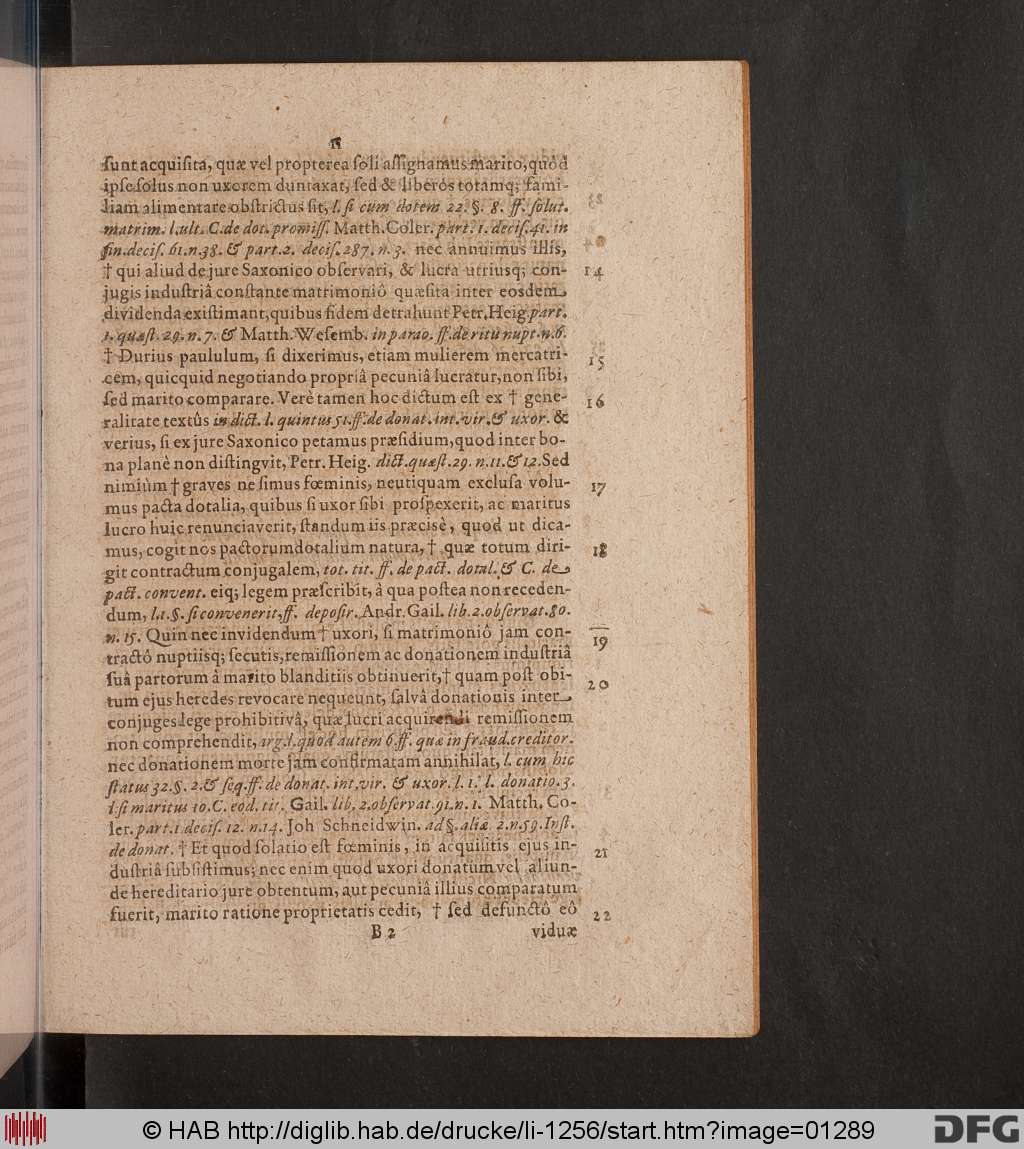 11
ſunt acquiſita, quæ vel propterea ſoli aſſignamus marito, quôd
ipſe ſolus non uxorem duntaxat, ſed & liberos totamq; fami-
liam alimentare obſtrictus ſit, l. ſi cum dotem 22. §. 8. ff. ſolut.
matrim. l. ult. C. de dot. promiſſ. Matth. Coler. part. 1. deciſ. 41. in
fin. deciſ. 61. n. 38. & part. 2. deciſ. 287. n. 3. nec annuimus illis,
† qui aliud de jure Saxonico obſervari, & lucra utriusq; con- 14
jugis induſtriâ conſtante matrimoniô quæſita inter eosdem
dividenda exiſtimant, quibus fidem detrahunt Petr. Heig part.
1. quæſt. 29. n. 7. & Matth. Weſemb. in ff. de ritu nupt. n. 6.
† Durius paululum, ſi dixerimus, etiam mulierem mercatri- 15
cem, quicquid negotiando propriâ pecuniâ lucratur, non ſibi,
ſed marito comparare. Verè tamen hoc dictum eſt ex † gene- 16
ralitate textûs in dict. l. quintus 51. ff. de donat. int. vir. & uxor. &
verius, ſi ex jure Saxonico petamus præſidium, quod inter bo-
na planè non diſtingvit, Petr. Heig. dict. quæſt. 29. n. 11. & 12. Sed
nimiùm † graves ne ſimus fœminis, neutiquam excluſa volu- 17
mus pacta dotalia, quibus ſi uxor ſibi proſpexerit, ac maritus
lucro huic renunciaverit, ſtandum iis præcisè, quod ut dica-
mus, cogit nos pactorum dotalium natura, † quæ totum diri- 18
git contractum conjugalem, tot. tit. ff. de pact. dotal. & C. de
pact. convent. eiq; legem præſcribit, à qua poſtea non receden-
dum, l. 1. §. ſi convenerit, ff. depoſir. Andr. Gail. lib. 2. obſervat. 80.
n. 15. Quin nec invidendum † uxori, ſi matrimoniô jam con- 19
tractô nuptiisq; ſecutis, remiſſionem ac donationem induſtriâ
ſuâ partorum à marito blanditiis obtinuerit, † quam poſt obi- 20
tum ejus heredes revocare nequeunt, ſalvâ donationis inter
conjuges lege prohibitivâ, quæ lucri acquirendi remiſſionem
non comprehendit, arg. l. quod autem 6. ff. quæ in fraud. creditor.
nec donationem morte jam confirmatam annihilat, l. cum hic
ſtatus 32. §. 2. & ſeq. ff. de donat. int. vir. & uxor. l. 1. l. donatio. 3.
l. ſi maritus 10. C. eod. tit. Gail. lib. 2. obſervat. 91. n. 1. Matth. Co-
ler. part. 1 deciſ. 12. n. 14. Joh Schneidwin. ad §. aliæ 2. n. 59. Inſt.
de donat. † Et quod ſolatio eſt fœminis, in acquiſitis ejus in- 21
duſtriâ ſubſiſtimus; nec enim quod uxori donatum vel aliun-
de hereditario jure obtentum, aut pecuniâ illius comparatum
fuerit, marito ratione proprietatis cedit, † ſed defunctô eô 22
B 2 viduæ
© HAB http://diglib.hab.de/drucke/li-1256/start.htm?image=01289
DFG